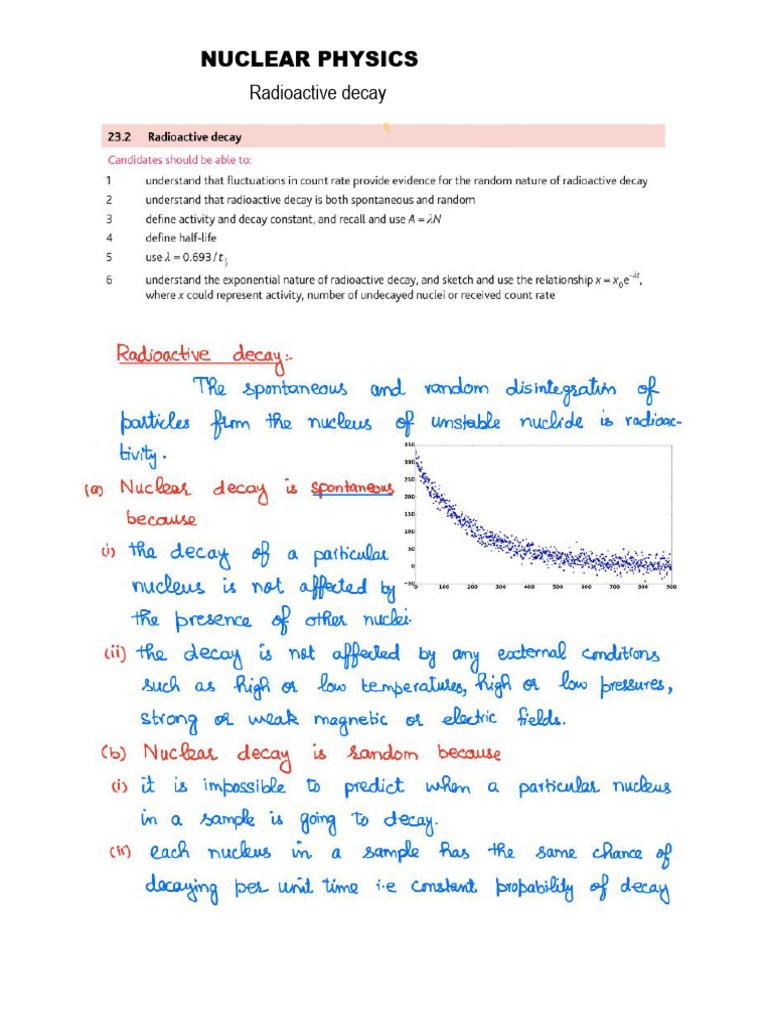 NUCLEAR PHYSICS
Radioactive decay
23.2 Radioactive decay
Candidates should be able to:
1 understand that fluctuations in count rate provide evidence for the random nature of radioactive decay
2 understand that radioactive decay is both spontaneous and random
3 define activity and decay constant, and recall and use A = λN
4 define half-life
5 use λ = 0.693/t½
6 understand the exponential nature of radioactive decay, and sketch and use the relationship x = x₀e^–λt,
where x could represent activity, number of undecayed nuclei or received count rate
Radioactive decay:-
The spontaneous and random disintegration of
particles from the nucleus of unstable nuclide is radioac-
tivity.
(a) Nuclear decay is spontaneous
because
(i) the decay of a particular
nucleus is not affected by
the presence of other nuclei.
350
300
250
200
150
100
50
0
-50
0 100 200 300 400 500 600 700 800 900
(ii) the decay is not affected by any external conditions
such as high or low temperatures, high or low pressures,
strong or weak magnetic or electric fields.
(b) Nuclear decay is random because
(i) it is impossible to predict when a particular nucleus
in a sample is going to decay.
(ii) each nucleus in a sample has the same chance of
decaying per unit time i.e constant probability of decay